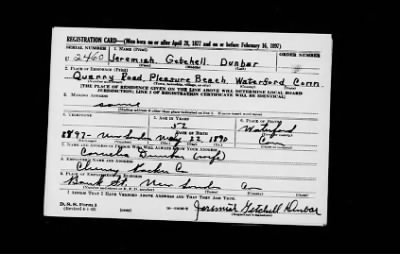 REGISTRATION CARD—(Men born on or after April 28, 1877 and on or before February 16, 1897)
SERIAL NUMBER 1. NAME (Print) ORDER NUMBER
U 2460 Jeremiah Getchell Dunbar
(First) (Middle) (Last)
2. PLACE OF RESIDENCE (Print)
Quarry Road, Pleasure Beach, Waterford Conn
[THE PLACE OF RESIDENCE GIVEN ON THE LINE ABOVE WILL DETERMINE LOCAL BOARD
JURISDICTION; LINE 2 OF REGISTRATION CERTIFICATE WILL BE IDENTICAL]
3. MAILING ADDRESS
same
4. TELEPHONE 5. AGE IN YEARS 6. PLACE OF BIRTH
Waterford
DATE OF BIRTH
8897- New London May 22 1890 Conn
7. NAME AND ADDRESS OF PERSON WHO WILL ALWAYS KNOW YOUR ADDRESS
Cornelia Dunbar (wife)
8. EMPLOYER'S NAME AND ADDRESS
Co
9. PLACE OF EMPLOYMENT OR BUSINESS
Bank St. New London Conn
I AFFIRM THAT I HAVE VERIFIED ABOVE ANSWERS AND THAT THEY ARE TRUE.
D. S. S. Form 1
Jeremiah Getchell Dunbar